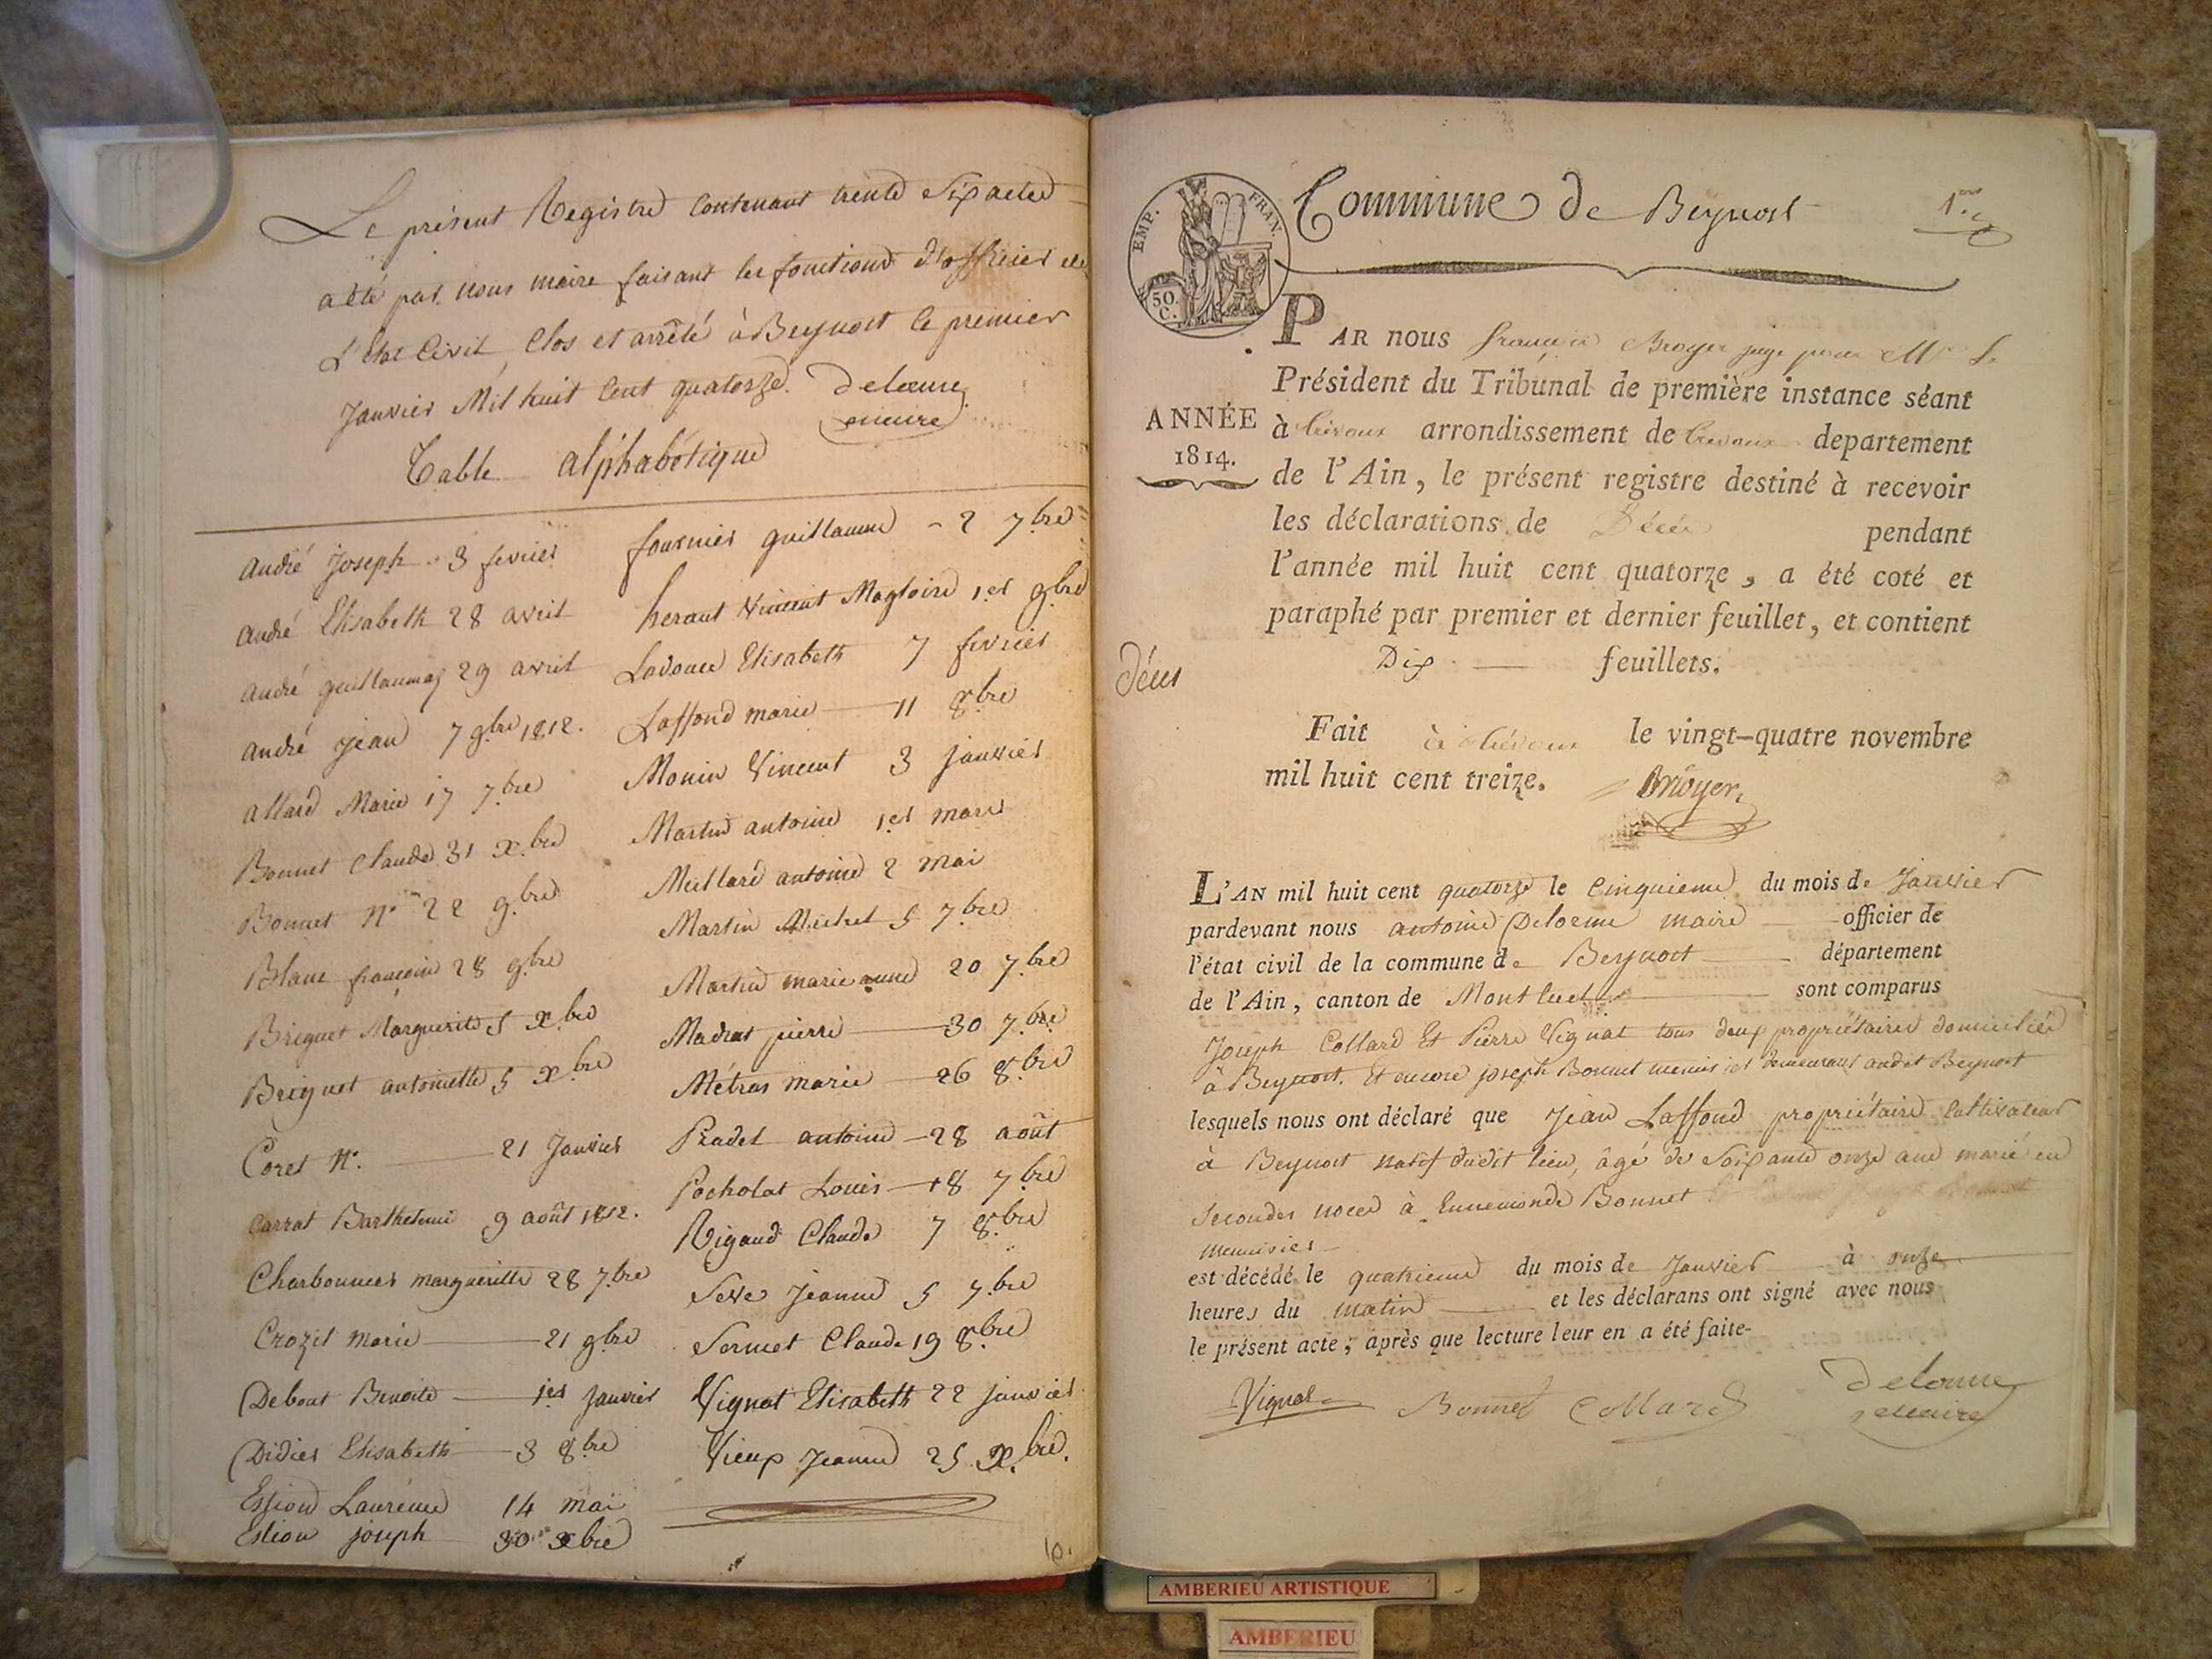 Le présent Registre contenant trente Six actes
a été par nous maire faisant les fonctions d'officier de
L'état Civil Clos et arrêté à Beynost le premier
Janvier Mil huit Cent quatorze. Delorme
maire
Table alphabétique
André Joseph 3 fevrier
André Elisabeth 28 avril
André guillaume 29 avril
André jean 7 9bre 1812.
Allard Marie 17 7bre
Bonnet Claude 31 xbre
Bonnet N. 22 9bre
Blanc françoise 28 9bre
Briguet Marguerite 5 xbre
Breynot antoinette 5 xbre
Coret N. 21 Janvier
Carrat Barthelemi 9 août 1812.
Charbonnier margueritte 28 7bre
Crozet marie 21 9bre
Debout Benoite 1er Janvier
Didier Elisabeth 3 8bre
Ession Laurence 14 mai
Estion joseph 30 xbre
fournier guillaume - 2 7bre
heraut Vincent Magloire 1er 9bre
Ladouce Elisabeth 7 fevrier
Laffond marie 11 8bre
Monin Vincent 3 Janvier
Martin antoine 1er mars
Meillard antoine 2 mai
Martin Michel 5 7bre
Martin marie anne 20 7bre
Madras pierre 30 7bre
Métras marie 26 8bre
Pradel antoine 28 août
Pocholat Louis 18 7bre
Rigaud Claude 7 8bre
Seve Jeanne 5 7bre
Sermet Claude 19 8bre
Vignat Elisabeth 22 janvier
Vieux Jeanne 25 xbre.
10.
Commune de Beynost 1er
EMP. FRAN.
50. C.
PAR nous Broyer juge pour Mr Le
Président du Tribunal de première instance séant
ANNÉE
1814.
à trévoux arrondissement de trevoux departement
de l'Ain, le présent registre destiné à recevoir
les déclarations de Décès pendant
l'année mil huit cent quatorze, a été coté et
paraphé par premier et dernier feuillet, et contient
Dix feuillets.
Décès
Fait à trévoux le vingt-quatre novembre
mil huit cent treize. Broyer
L'AN mil huit cent quatorze le Cinquieme du mois de Janvier
pardevant nous antoine Delorme maire officier de
l'état civil de la commune de Beynost département
de l'Ain, canton de Montluel sont comparus
Joseph Collard Et Pierre Vignat tous deux propriétaires domiciliés
à Beynost. Et encore joseph Bonnet menuisier demeurant audit Beynost
lesquels nous ont déclaré que Jean Laffond propriétaire Cultivateur
à Beynost natif dudit lieu, âgé de Soixante onze ans marié en
Secondes noces à Ennemonde Bonnet
menuisier
est décédé le quatrieme du mois de Janvier à onze
heures du matin et les déclarans ont signé avec nous
le présent acte; après que lecture leur en a été faite-
Vignat Bonnet Collard Delorme
maire
AMBERIEU ARTISTIQUE
AMBERIEU